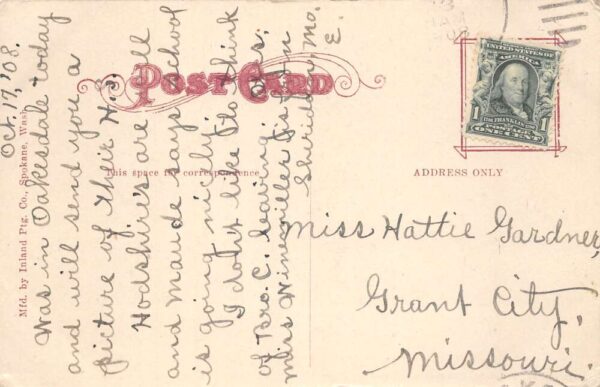 POST CARD
This space for correspondence
ADDRESS ONLY
Mfd. by Inland Ptg. Co., Spokane, Wash.
UNITED STATES OF
AMERICA
1 1
FRANKLIN
POSTAGE
ONE CENT
Oct. 17, '08.
Was in Oakesdale today
and will send you a
picture of their H.S.
Hodshire's are well
and maude says school
is going nicely.
I don't like to think
of Bro. C. leaving us.
Miss Winemiller is not in
Sheridan, Mo.
E.
Miss Hattie Gardner,
Grant City,
Missouri.